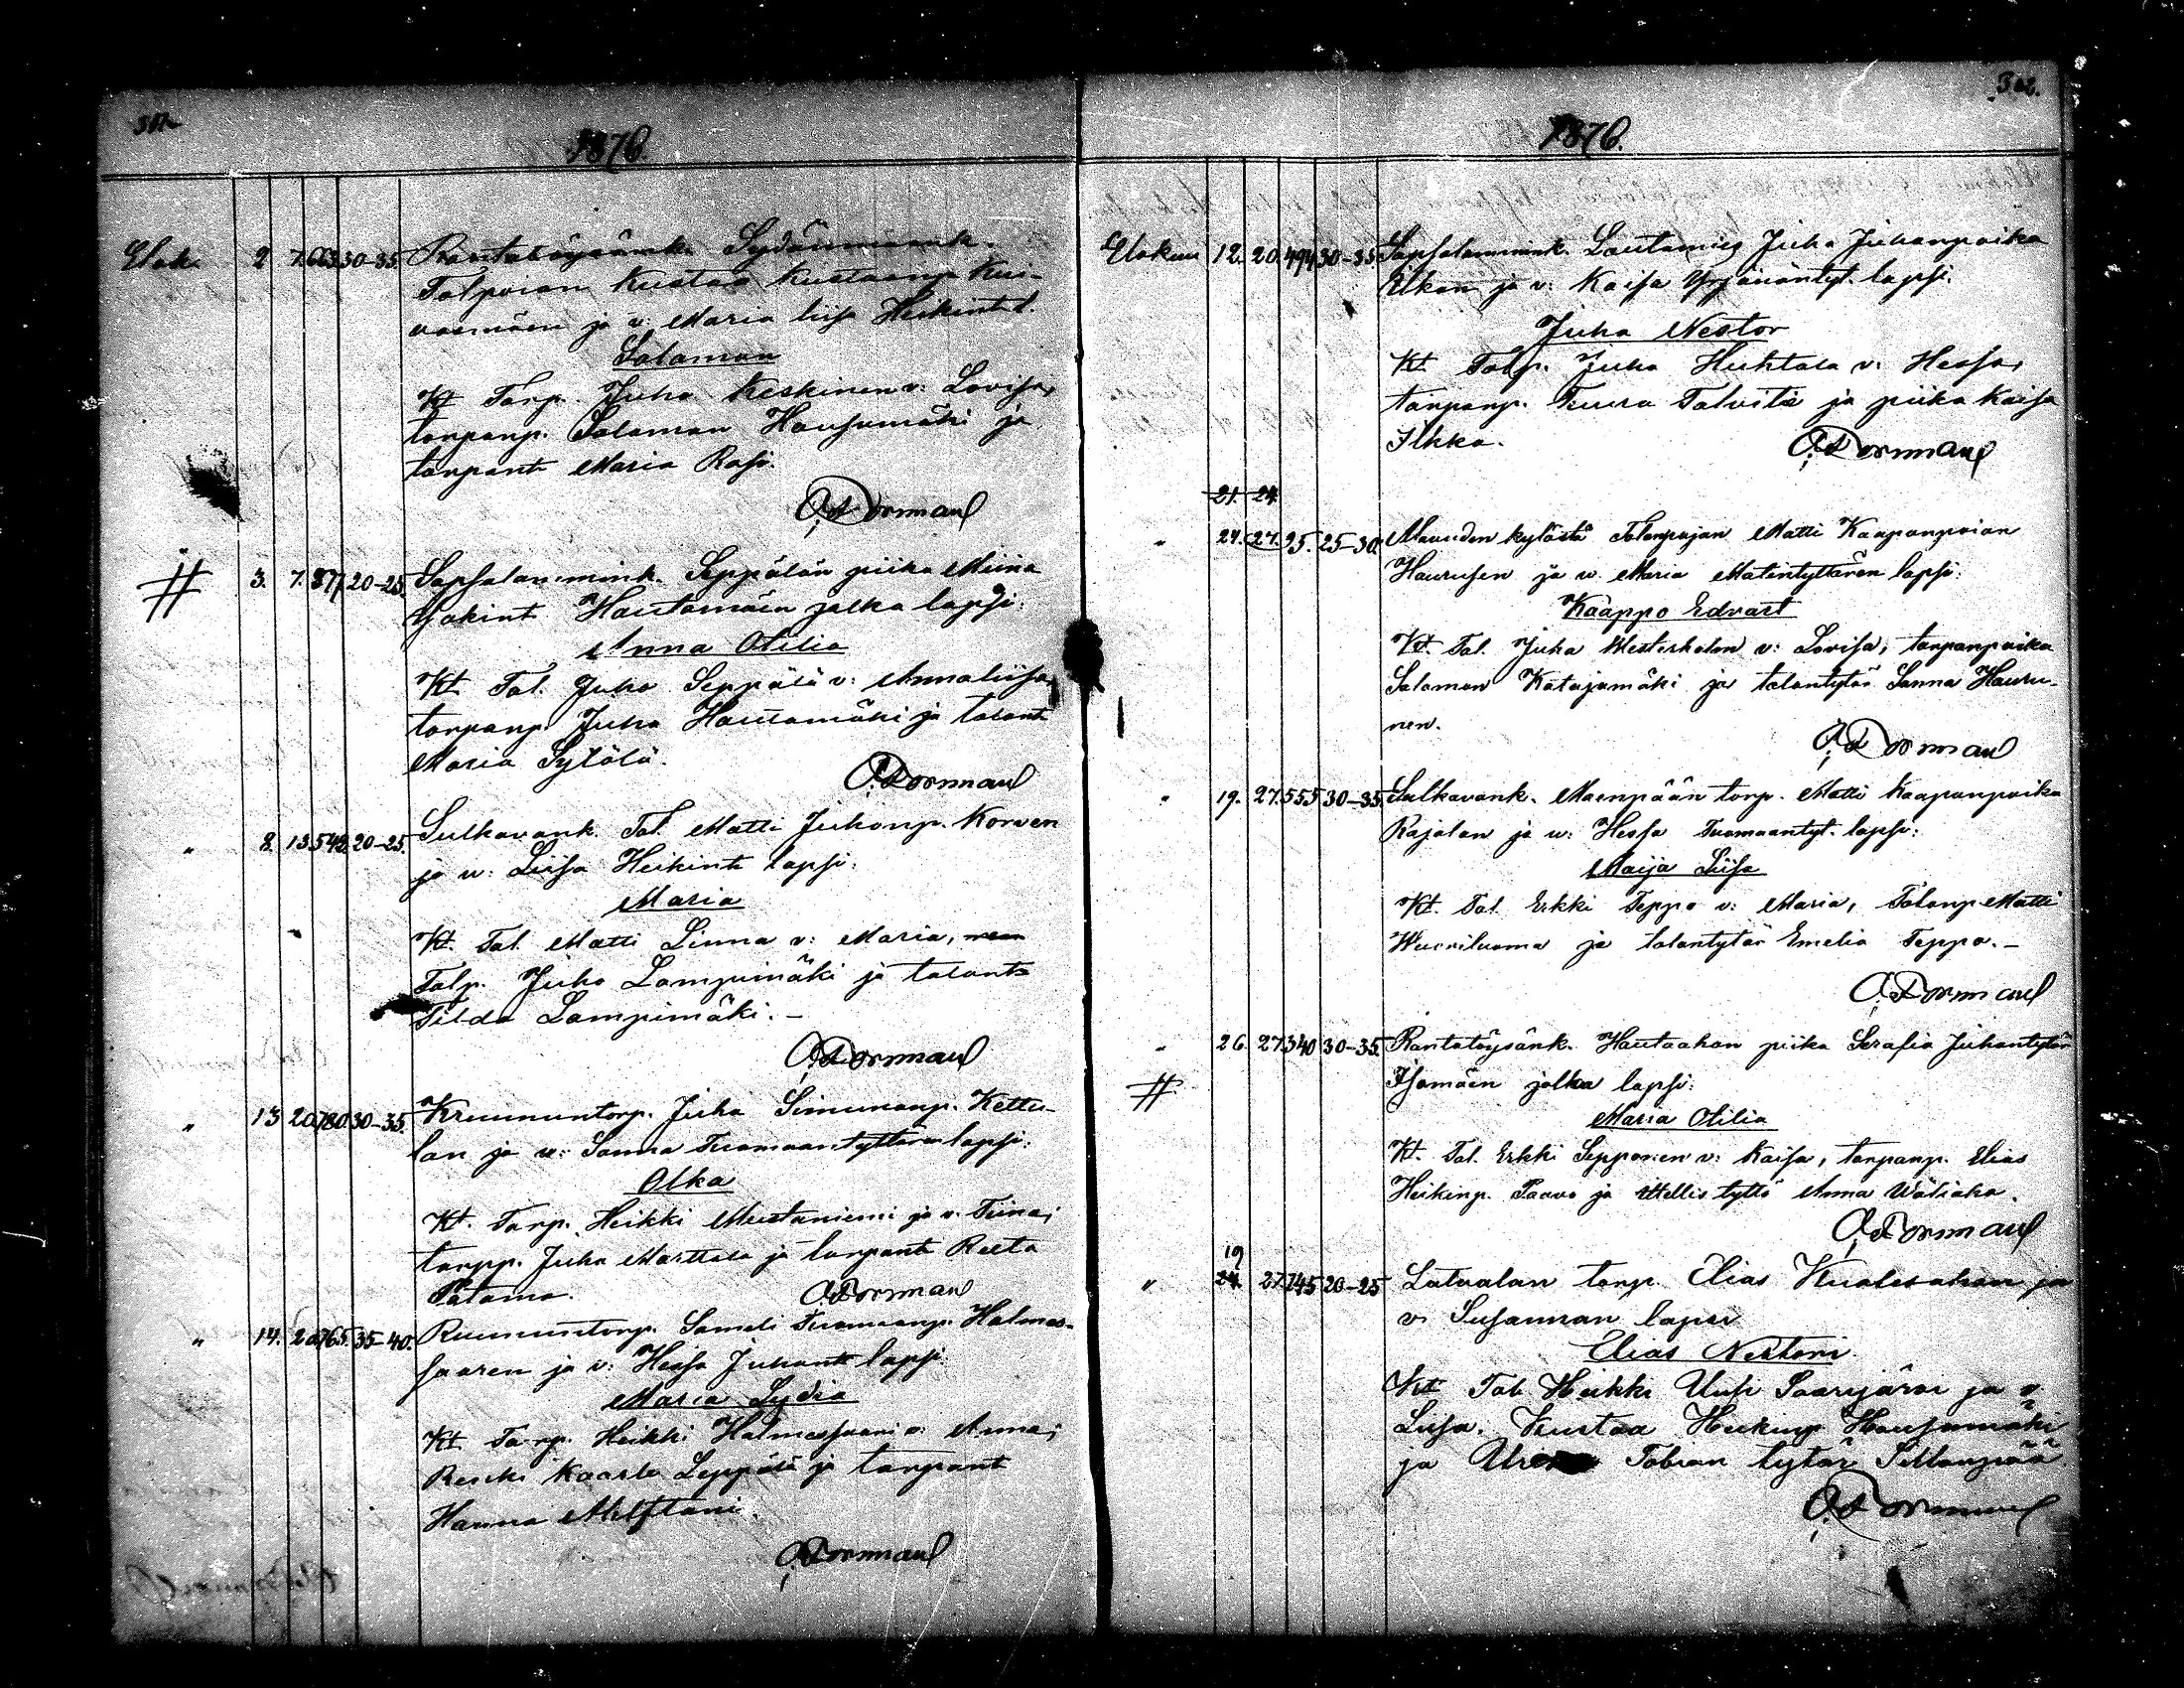 1876.
Elok. 2 7. 663. 30-35. Rantatöysänk. Sydänmaank.
Talpoian Kustaa Kustaanp. Kui-
vasmäen ja v: Maria Liisa Heikint l.
Salaman
Kt Torp. Juho Keskinen v: Lovisa,
torpanp. Salaman Hansumäki ja
torpant Maria Rasi.
O. A. Dormaul
# 3. 7. 377. 20-25. Sapsalammink. Seppälän piika Miina
Jakint Hautamäen jalka lapsi:
Anna Otilia
Kt Tal. Juho Seppälä v: Annaliisa,
torpanp Juha Hautamäki ja talont
Maria Sytälä.
O. A. Dormaul
" 8. 13. 542. 20-25. Sulkavank. Tal. Matti Juhonp. Korven
ja v: Liisa Heikint lapsi:
Maria
Kt. Tal. Matti Linna v: Maria,
Talp. Juho Lampimäki ja talont
Tilda Lampimäki. -
O. A. Dormaul
" 13 20. 780. 30-35. Kruununtorp. Juha Simunanp. Kettu-
lan ja v: Sanna Tuomaantyttären lapsi:
Olka
Kt. Torp. Heikki Mustaniemi ja v. Tiina;
torpp. Juha Marttala ja torpant Reeta
Patama.
O. A. Dormaul
" 14. 20. 765. 35-40. Ruununtorp. Sameli Tuomaanp. Halmes-
saaren ja v: Hessa Juhont lapsi:
Maria Lydia
Kt. Torp. Heikki Halmessaari v: Anna;
Renki Kaarle Leppälä ja torpant
Hanna
O. A. Dormaul
302.
1876.
Elokuu 12. 20. 494 30-35. Sapsalammink. Lautamies Juha Juhanpoika
Ilkan ja v: Kaisa Yrjänäntyt. lapsi.
Juha Nestor
Kt. Talp. Juha Huhtala v: Hessa,
torpanp. Tuura Talvitie ja piika Kaisa
Ilkka.
O. A. Dormaul
21. 24.
" 24. 27. 95. 25-30. Alavuden kylästä Talonpojan Matti Kaapanpoian
Haurusen ja v. Maria Matintyttären lapsi:
Kaappo Edvart
Kt. Tal. Juha Westerholm v: Lovisa, torpanpoika
Salaman Katajamäki ja talontytär Sanna Hauru-
nen.
O. A. Dormaul
" 19. 27. 555 30-35. Sulkavank. Maenpään torp. Matti Kaapanpoika
Rajalan ja v: Hessa Tuomaantyt. lapsi:
Maija Liisa
Kt. Tal. Erkki Teppo v: Maria, Talonp. Matti
Wuoriluoma ja talontytär Emelia Teppo. -
O. A. Dormaul
" 26. 27. 340 30-35. Rantatöysänk. Hautaahon piika Serafia Juhontytär
# Isomäen jalka lapsi:
Maria Otilia
Kt. Tal. Erkki Sepponen v: Kaisa, torpanp. Elias
Heikinp. Paavo ja ittellis tyttö Anna Wäliaho.
O. A. Dormaul
19
" 24. 27. 745 20-25 Latvalan torp. Elias Kualesahon ja
v. Susannan lapsi
Elias Nestori
Kt Tal. Heikki Uusi Saarijärvi ja v
Liisa. Kustaa Heikinp Hansumäki
ja Tobian tytär Sillanpää
O. A. Dormaul